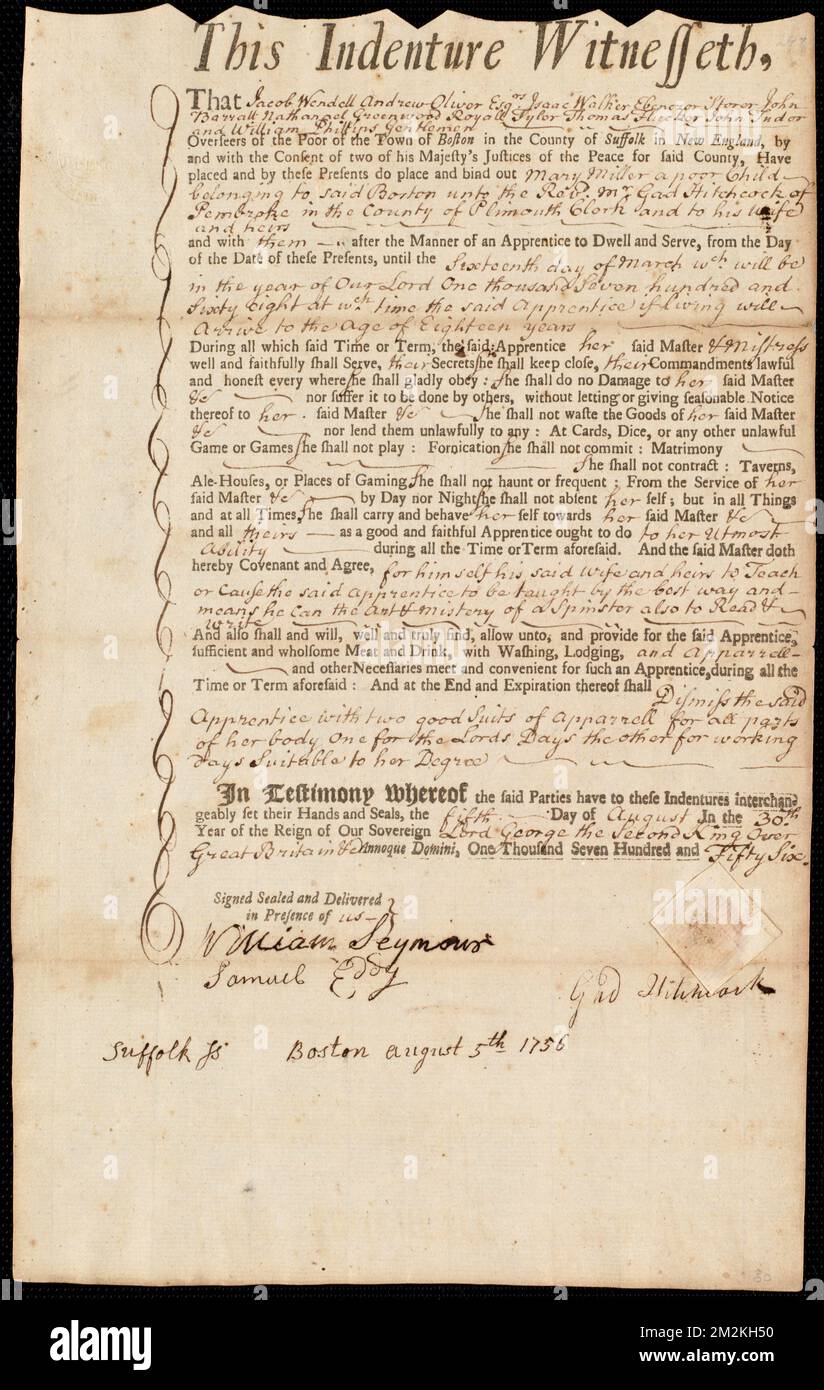 This Indenture Witnesseth,
That Jacob Wendell Andrew Oliver Esqrs Isaac Walker Ebenezer Storer John
Barrall Nathanael Greenwood Royall Tyler Thomas Flucker John Tudor
and William Phillips Gentlemen
Overseers of the Poor of the Town of Boston in the County of Suffolk in New England, by
and with the Consent of two of his Majesty's Justices of the Peace for said County, Have
placed and by these Presents do place and bind out Mary Miller a poor Child
belonging to said Boston unto the Revd. Mr. Gad Hitchcock of
Pembroke in the County of Plimouth Clerk and to his Wife
and heirs
and with them after the Manner of an Apprentice to Dwell and Serve, from the Day
of the Date of these Presents, until the Sixteenth day of March wch. will be
in the year of Our Lord One thousand Seven hundred and
Sixty eight at wch. time the said Apprentice if living will
Arrive to the Age of Eighteen years
During all which said Time or Term, the said Apprentice her said Master & Mistress
well and faithfully shall Serve, their Secrets she shall keep close, their Commandments lawful
and honest every where she shall gladly obey : She shall do no Damage to her said Master
&c nor suffer it to be done by others, without letting or giving seasonable Notice
thereof to her said Master &c She shall not waste the Goods of her said Master
&c nor lend them unlawfully to any : At Cards, Dice, or any other unlawful
Game or Games She shall not play : Fornication she shall not commit : Matrimony
She shall not contract : Taverns,
Ale-Houses, or Places of Gaming She shall not haunt or frequent : From the Service of her
said Master &c by Day nor Night she shall not absent her self ; but in all Things
and at all Times She shall carry and behave her self towards her said Master &c
and all theirs as a good and faithful Apprentice ought to do to her Utmost
Ability during all the Time or Term aforesaid. And the said Master doth
hereby Covenant and Agree, for himself his said Wife and heirs to Teach
or Cause the said Apprentice to be taught by the best way and
means he Can the Art & Mistery of a Spinster also to Read &
Write
And also shall and will, well and truly find, allow unto, and provide for the said Apprentice,
sufficient and wholsome Meat and Drink, with Washing, Lodging, and Apparrell
and other Necessaries meet and convenient for such an Apprentice, during all the
Time or Term aforesaid : And at the End and Expiration thereof shall Dismiss the said
Apprentice with two good Suits of Apparrell for all parts
of her body One for the Lords Days the other for working
days Suitable to her Degree
In Testimony whereof the said Parties have to these Indentures interchan
geably set their Hands and Seals, the fifth Day of August In the 30th
Year of the Reign of Our Sovereign Lord George the Second King Over
Great Britain &c Annoque Domini, One Thousand Seven Hundred and Fifty Six.
Signed Sealed and Delivered
in Presence of us
William Seymour
Samuel Eddy
Gad Hitchcock
Suffolk ss Boston August 5th 1756
30
alamy
Image ID: 2M2KH50
www.alamy.com